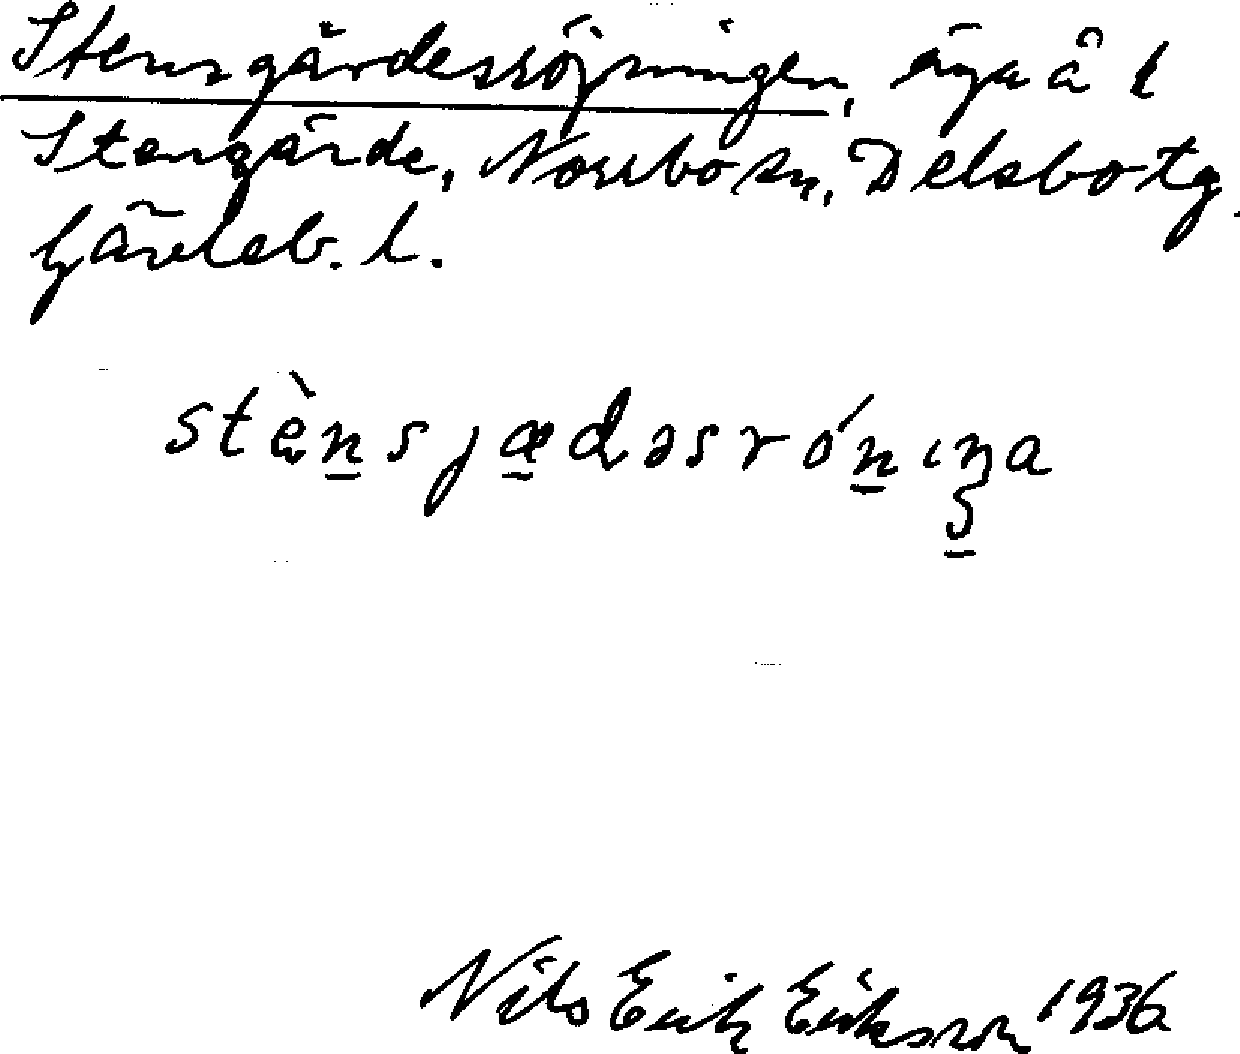 Stensgärdesröjningen, äga å t
Stengärde, Norrbo sn, Delsbo tg.
Gävleb. l.
stènsjædəsrónıŋa
Nils Erik Eriksson 1936